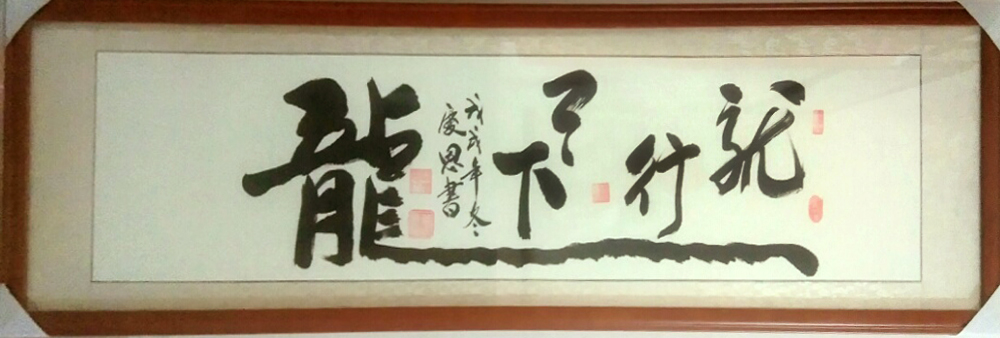 龍行天下
戊戌年冬
慶恩書
龍